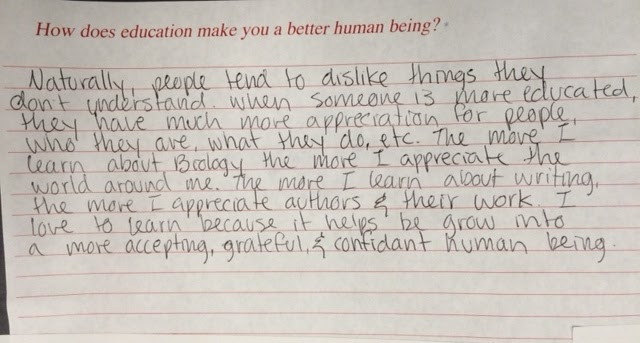 How does education make you a better human being?
Naturally, people tend to dislike things they
don't understand. when someone is more educated,
they have much more appreciation for people,
who they are, what they do, etc. The more I
learn about Biology the more I appreciate the
world around me. The more I learn about writing,
the more I appreciate authors & their work. I
love to learn because it helps be grow into
a more accepting, grateful, & confidant human being.